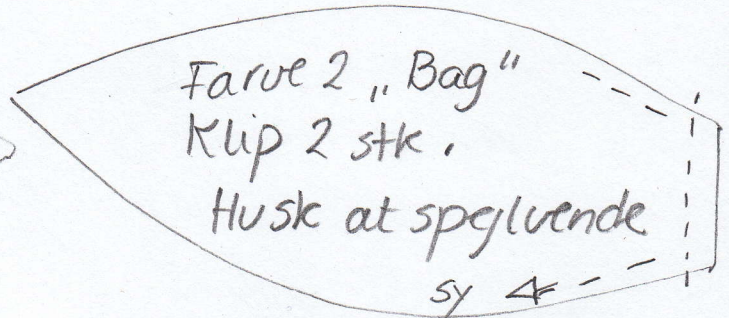 Farve 2 „Bag"
Klip 2 stk.
Husk at spejlvende
sy